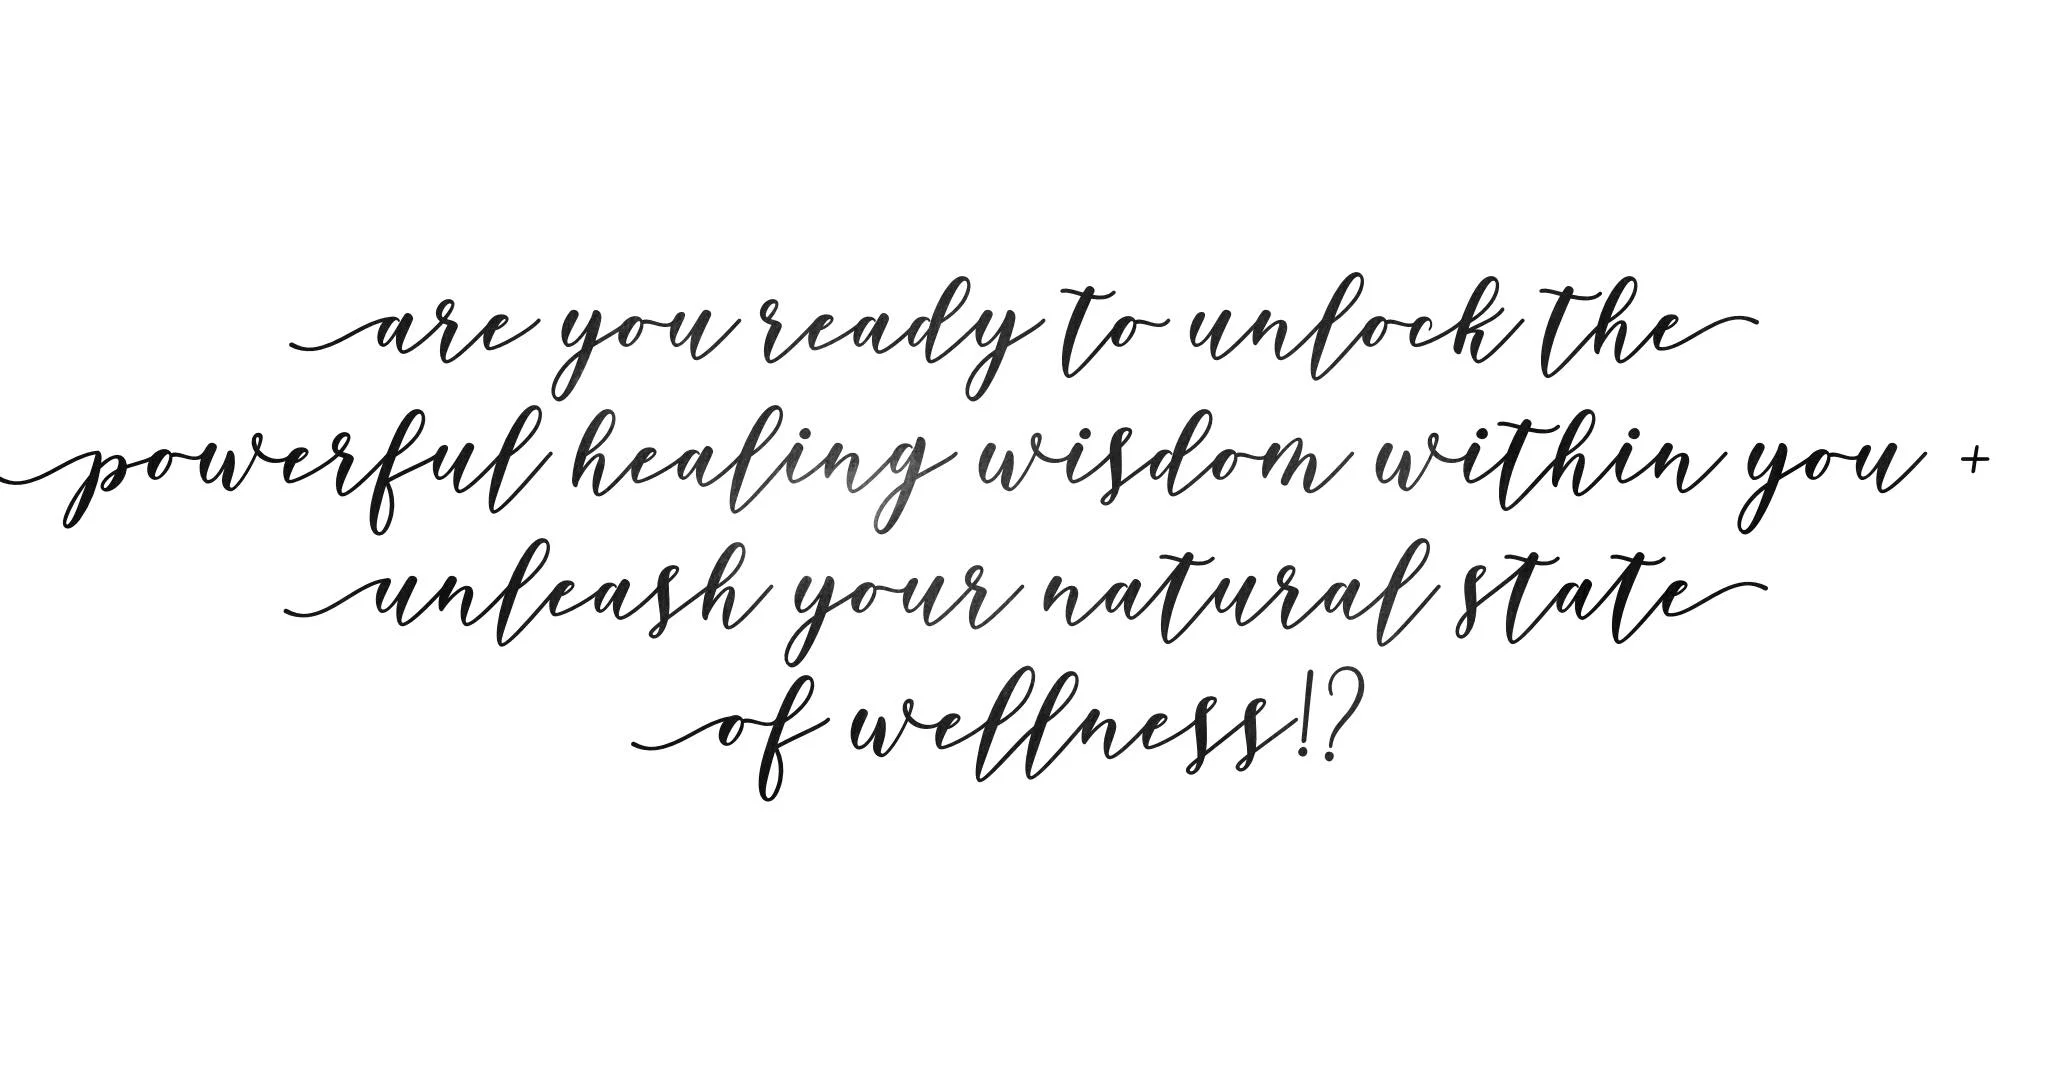 are you ready to unlock the
powerful healing wisdom within you +
unleash your natural state
of wellness!?